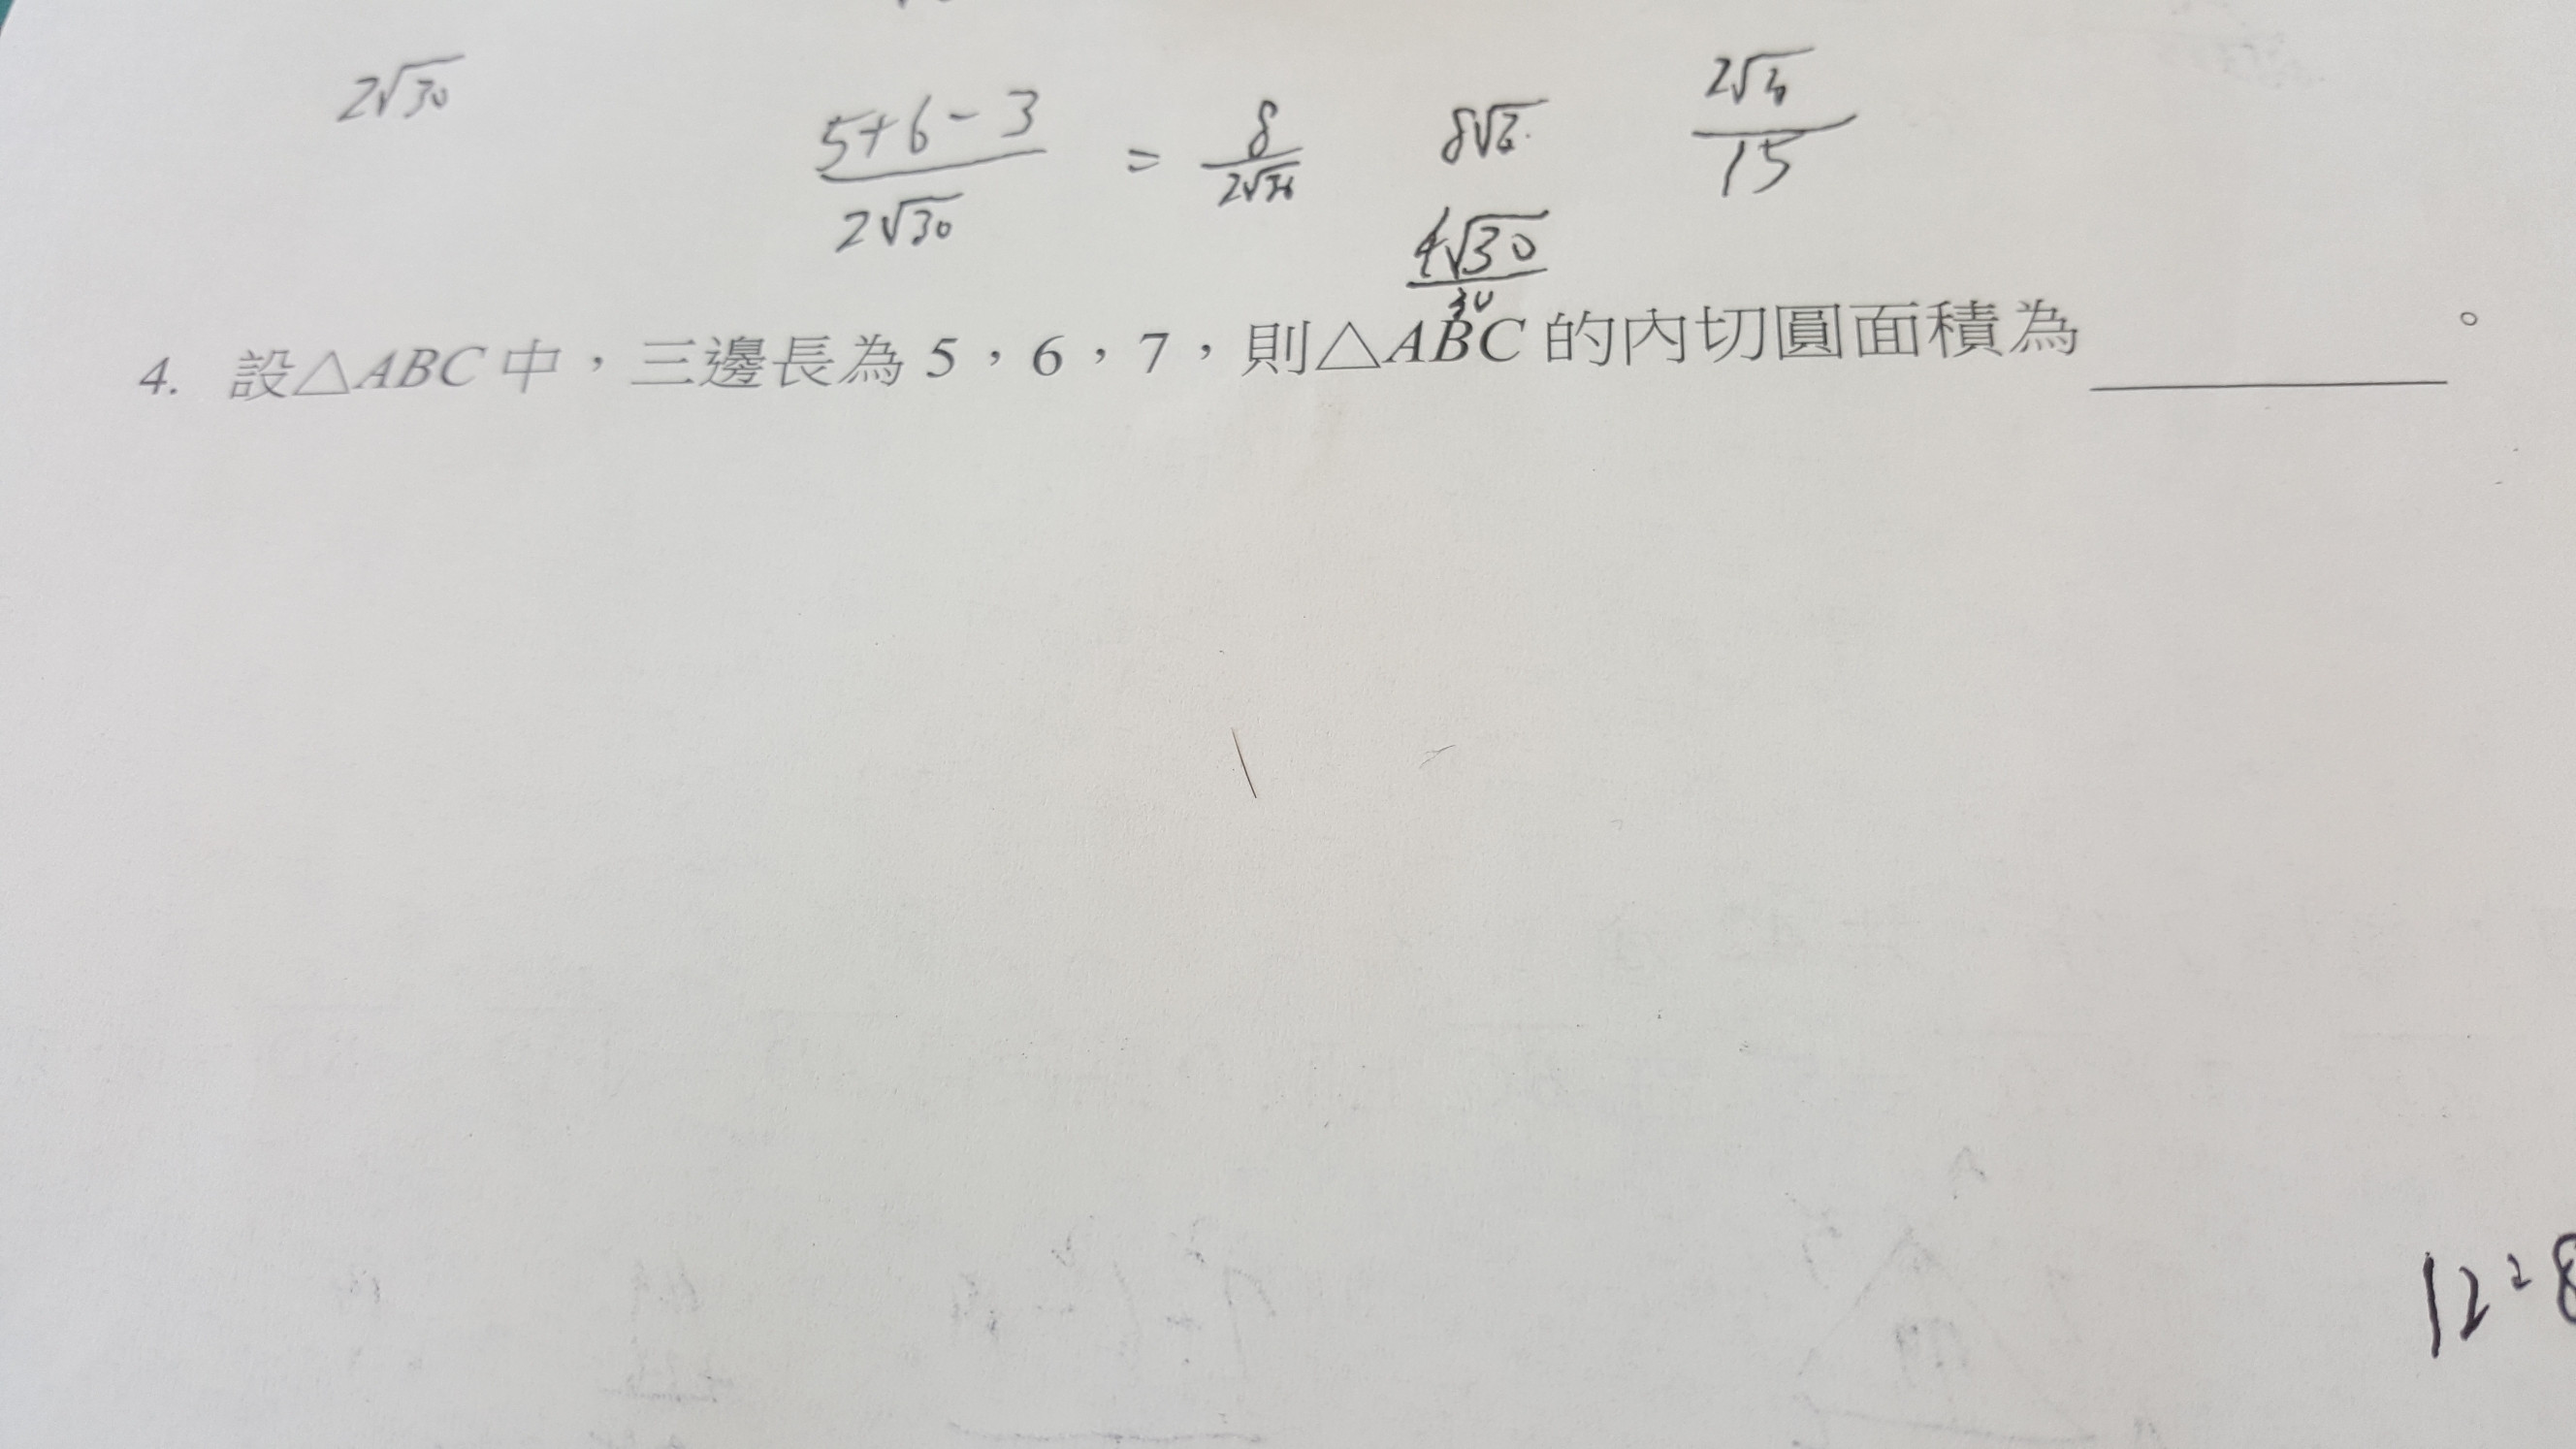 2√30
5+6-3 / 2√30 = 8 / 2√30
8√6
2√30 / 15
4√30 / 30
4. 設△ABC中，三邊長為5，6，7，則△ABC的內切圓面積為__________。
12